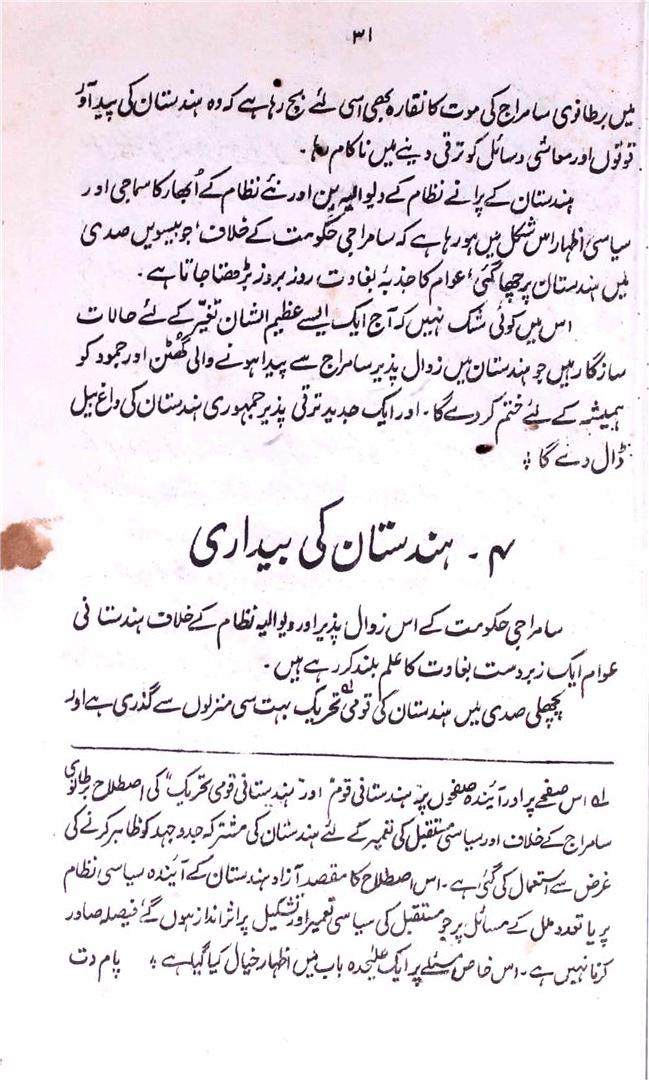 ۳۱
میں برطانوی سامراج کی موت کا نقارہ بھی اسی لئے بج رہا ہے کہ وہ ہندستان کی پیدا آور
قوتوں اور معاشی وسائل کو ترقی دینے میں ناکام رہا۔
ہندستان کے پرانے نظام کے دیوالیہ پن اور نئے نظام کے اُبھار کا سماجی اور
سیاسی اظہار اس شکل میں ہو رہا ہے کہ سامراجی حکومت کے خلاف، جو بیسویں صدی
میں ہندستان پر چھا گئی، عوام کا جذبۂ بغاوت روز بروز بڑھتا جاتا ہے۔
اس میں کوئی شک نہیں کہ آج ایک ایسے عظیم الشان تغیّر کے لئے حالات
سازگار ہیں جو ہندستان میں زوال پذیر سامراج سے پیدا ہونے والی گھٹن اور جمود کو
ہمیشہ کے لئے ختم کر دے گا۔ اور ایک جدید ترقی پذیر جمہوری ہندستان کی داغ بیل
ڈال دے گا ؞
۴۔ ہندستان کی بیداری
سامراجی حکومت کے اس زوال پذیر اور دیوالیہ نظام کے خلاف ہندستانی
عوام ایک زبردست بغاوت کا علم بلند کر رہے ہیں۔
پچھلی صدی میں ہندستان کی قومی تحریک لہ بہت سی منزلوں سے گذری ہے اور
لہ اس صفحے پر اور آئندہ صفحوں پر "ہندستانی قوم" اور "ہندستانی قومی تحریک" کی اصطلاح برطانوی
سامراج کے خلاف اور سیاسی مستقبل کی تعمیر کے لئے ہندستان کی مشترکہ جدوجہد کو ظاہر کرنے کی
غرض سے استعمال کی گئی ہے۔ اس اصطلاح کا مقصد آزاد ہندستان کے آئندہ سیاسی نظام
پر یا تعدد ملل کے مسائل پر جو مستقبل کی سیاسی تعمیر اور تشکیل پر اثر انداز ہوں گے، فیصلہ صادر
کرنا نہیں ہے۔ اس خاص مسئلے پر ایک علیحدہ باب میں اظہار خیال کیا گیا ہے ؞ پام دت